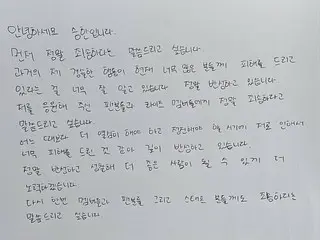 안녕하세요 승한입니다.
먼저 정말 죄송하다는 말씀드리고 싶습니다.
과거의 제 경솔한 행동이 현재 너무 많은 분들께 피해를 드리고
있다는 걸 너무 잘 알고 있습니다. 정말 반성하고 있습니다.
저를 응원해 주신 팬분들과 라이즈 멤버들에게 정말 죄송하다고
말씀드리고 싶습니다.
어느 때보다 더 열심히 해야 하고 집중해야 할 시기에 저로 인해서
너무 피해를 드린 것 같아 깊이 반성하고 있습니다.
정말 반성하고 성숙해 더 좋은 사람이 될 수 있게 더
노력하겠습니다.
다시 한번 멤버들과 팬분들 그리고 스태프 분들께도 죄송하다는
말씀드리고 싶습니다.